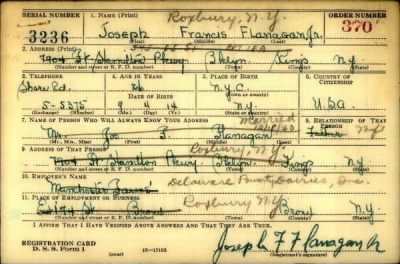 SERIAL NUMBER 1. NAME (Print) Roxbury, N.Y. ORDER NUMBER
3236 Joseph Francis Flanagan Jr. 370
(First) (Middle) (Last)
2. ADDRESS (Print)
7904 Ft. Hamilton Pkwy. Bklyn. Kings N.Y.
(Number and street or R. F. D. number) (Town) (County) (State)
3. TELEPHONE 4. AGE IN YEARS 5. PLACE OF BIRTH 6. COUNTRY OF CITIZENSHIP
Shore Rd. 26 N.Y.C.
DATE OF BIRTH
5-5275 9 4 14 N.Y. U.S.A
(Exchange) (Number) (Mo.) (Day) (Yr.) (State or country)
7. NAME OF PERSON WHO WILL ALWAYS KNOW YOUR ADDRESS Married 8. RELATIONSHIP OF THAT PERSON
Mr. Jos F. Flanagan Father Wife
(Mr., Mrs., Miss) (First) (Middle) (Last)
9. ADDRESS OF THAT PERSON Roxbury, N.Y.
7904 Ft. Hamilton Pkwy. Bklyn. Kings N.Y.
(Number and street or R. F. D. number) (Town) (County) (State)
10. EMPLOYER'S NAME
Delaware County Dairies, Inc.
11. PLACE OF EMPLOYMENT OR BUSINESS Roxbury N.Y.
St. Bronx Bronx N.Y.
(Number and street or R. F. D. number) (Town) (County) (State)
I AFFIRM THAT I HAVE VERIFIED ABOVE ANSWERS AND THAT THEY ARE TRUE.
REGISTRATION CARD
D. S. S. Form 1 16-17105 Joseph F Flanagan Jr
(Registrant's signature)